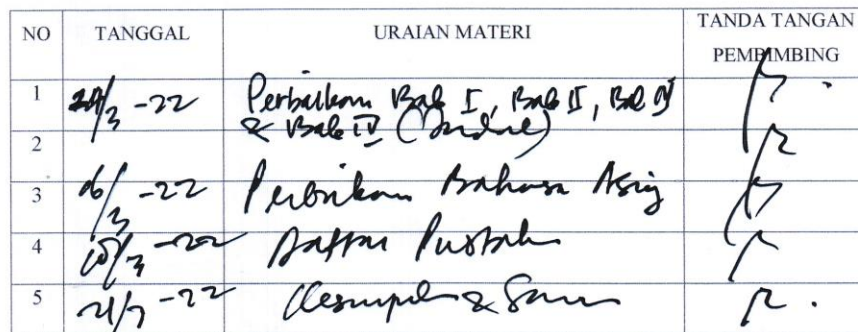 NO TANGGAL URAIAN MATERI TANDA TANGAN PEMBIMBING
1 /3 -22 Perbaikan Bab I, Bab II, Bab
2 & Bab IV
3 /3 -22 Perbaikan Bahasa Asing
4 /3 -22 Daftar Pustaka
5 21/3 -22 Kesimpulan & Saran